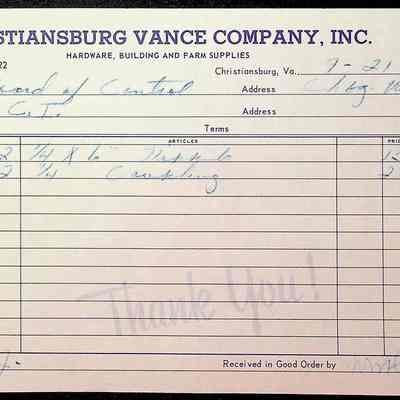 STIANSBURG VANCE COMPANY, INC.
HARDWARE, BUILDING AND FARM SUPPLIES
22
Christiansburg, Va. 7-21
oard of Control Address Chbg. 
C.I. Address
Terms
ARTICLES PRI
2 1/4 X 6" Nipple 1
2 1/4 Coupling 2
Thank You!
Received in Good Order by